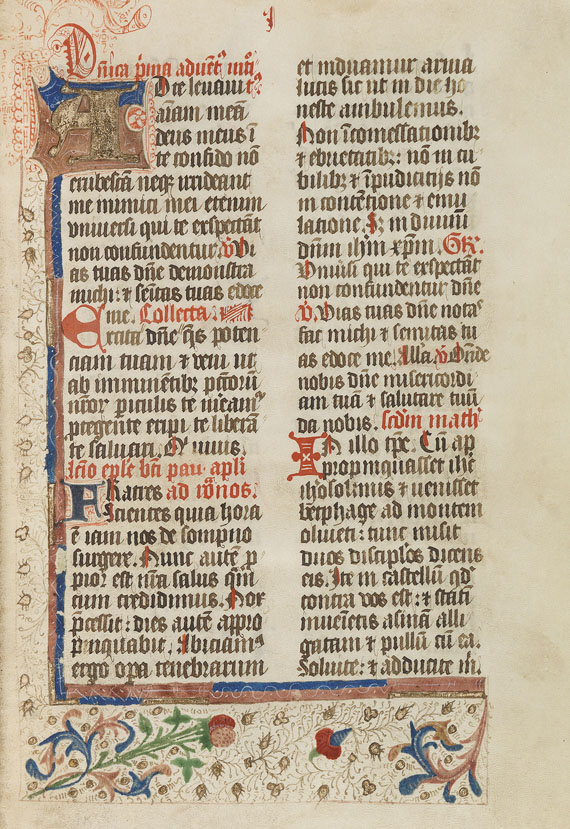 Dnica p̄ma aduētꝰ ītꝰ
Ad te leuaui
aīam meā
deus meus ī
te confido nō
erubescā neqꝫ irrideant
me inimici mei etenim
vniuersi qui te expectant
non confundentur. v̄ Vi
as tuas dn̄e demonstra
michi: ⁊ sēitas tuas edoce
me. Collecta.
Excita dn̄e q̄s poten
ciam tuam ⁊ veni ut
ab imminētibꝫ pctōrū
nrōꝝ piculis te meam᷒
ptegente eripi te liberā
te saluari. Qui viuis.
lcīo ep̄le bt̄i pau. apl̄i
Fratres ad ro̅nos.
Scientes quia hora
ē iam nos de sompno
surgere. Nunc autē p
pior est nr̄a salus q̄m
cum credidimus. Nox
p̄cessit: dies autē appro
pinquabit. Abiciamꝰ
ergo opa tenebrarum
et induamur arma
lucis sic ut in die ho
neste ambulemus.
Non ī comessationibꝫ
⁊ ebrietatibꝫ: nō in cu
bilibꝫ ⁊ īpudicitijs nō
in contētione ⁊ emu
latione. Sꝫ induimi
dn̄um ihm̄ xp̄m. Gr̄.
Vniuersi qui te expectāt
non confundentur dn̄e
v̄. Vias tuas dn̄e notas
fac michi ⁊ semitas tu
as edoce me. Alla v̄ Oncē
nobis dn̄e misericordi
am tuā ⁊ salutare tuū
da nobis. scdm̄ math̄
In illo tpe. Cū ap
propinquasset ihc̄
ihōsolimis ⁊ venisset
bethphage ad montem
oliueti: tunc misit
duos disciplos dicens
eis. Ite in castellū qd̄
contra vos est: ⁊ statī
inueietis asinā alli
gatam ⁊ pullū cū ea.
Soluite: ⁊ adducite m̄.